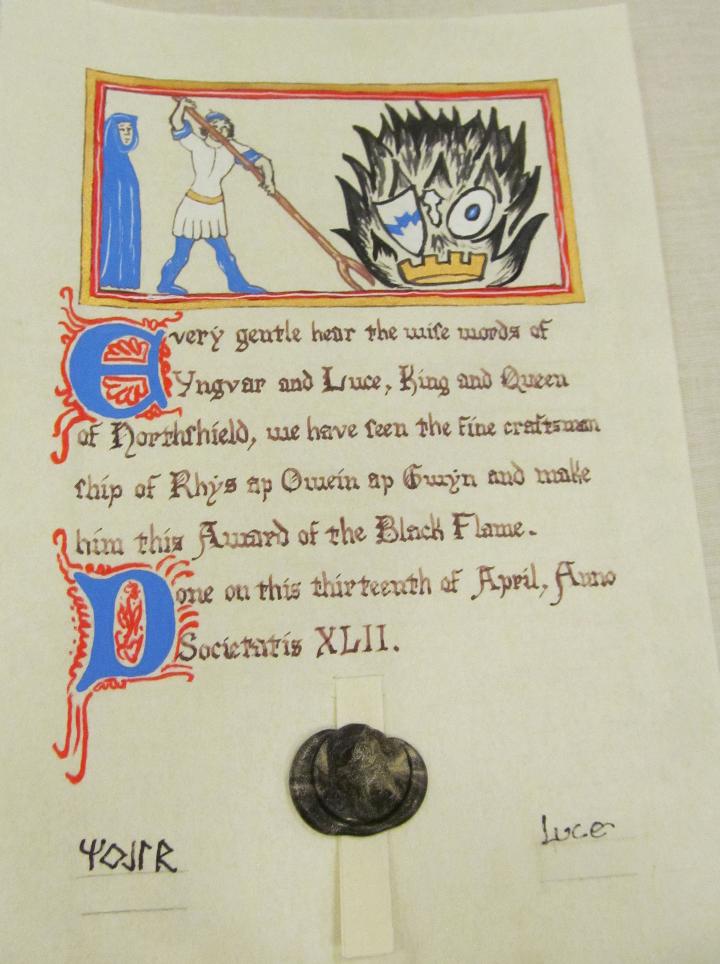 Every gentle hear the wise words of
Yngvar and Luce, King and Queen
of Northshield, we have seen the fine craftsman
ship of Rhys ap Owein ap Gwyn and make
him this Award of the Black Flame.
Done on this thirteenth of April, Anno
Societatis XLII.
Luce